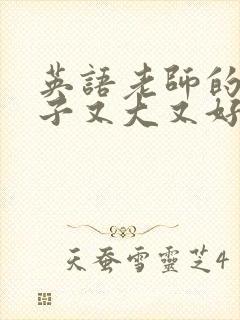 英語老師的
子又大又好
天蚕雪靈芝4